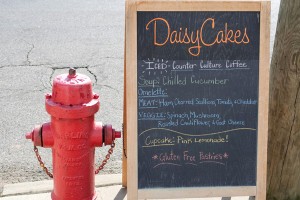 DaisyCakes
Iced - Counter Culture Coffee
Soup: Chilled Cucumber
Omelette:
MEAT: Ham, Charred Scallions, Tomato, + Cheddar
VEGGIE: Spinach, Mushrooms,
Roasted Cauliflower, + Goat Cheese
Cupcake: Pink Lemonade!
*Gluten Free